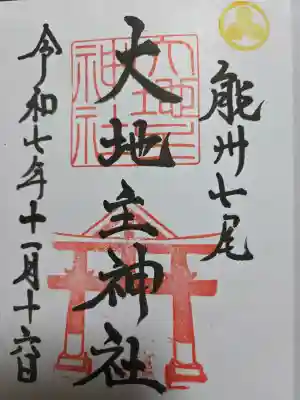 能州七尾
大地主神社
令和七年十一月十六日
大地主神社